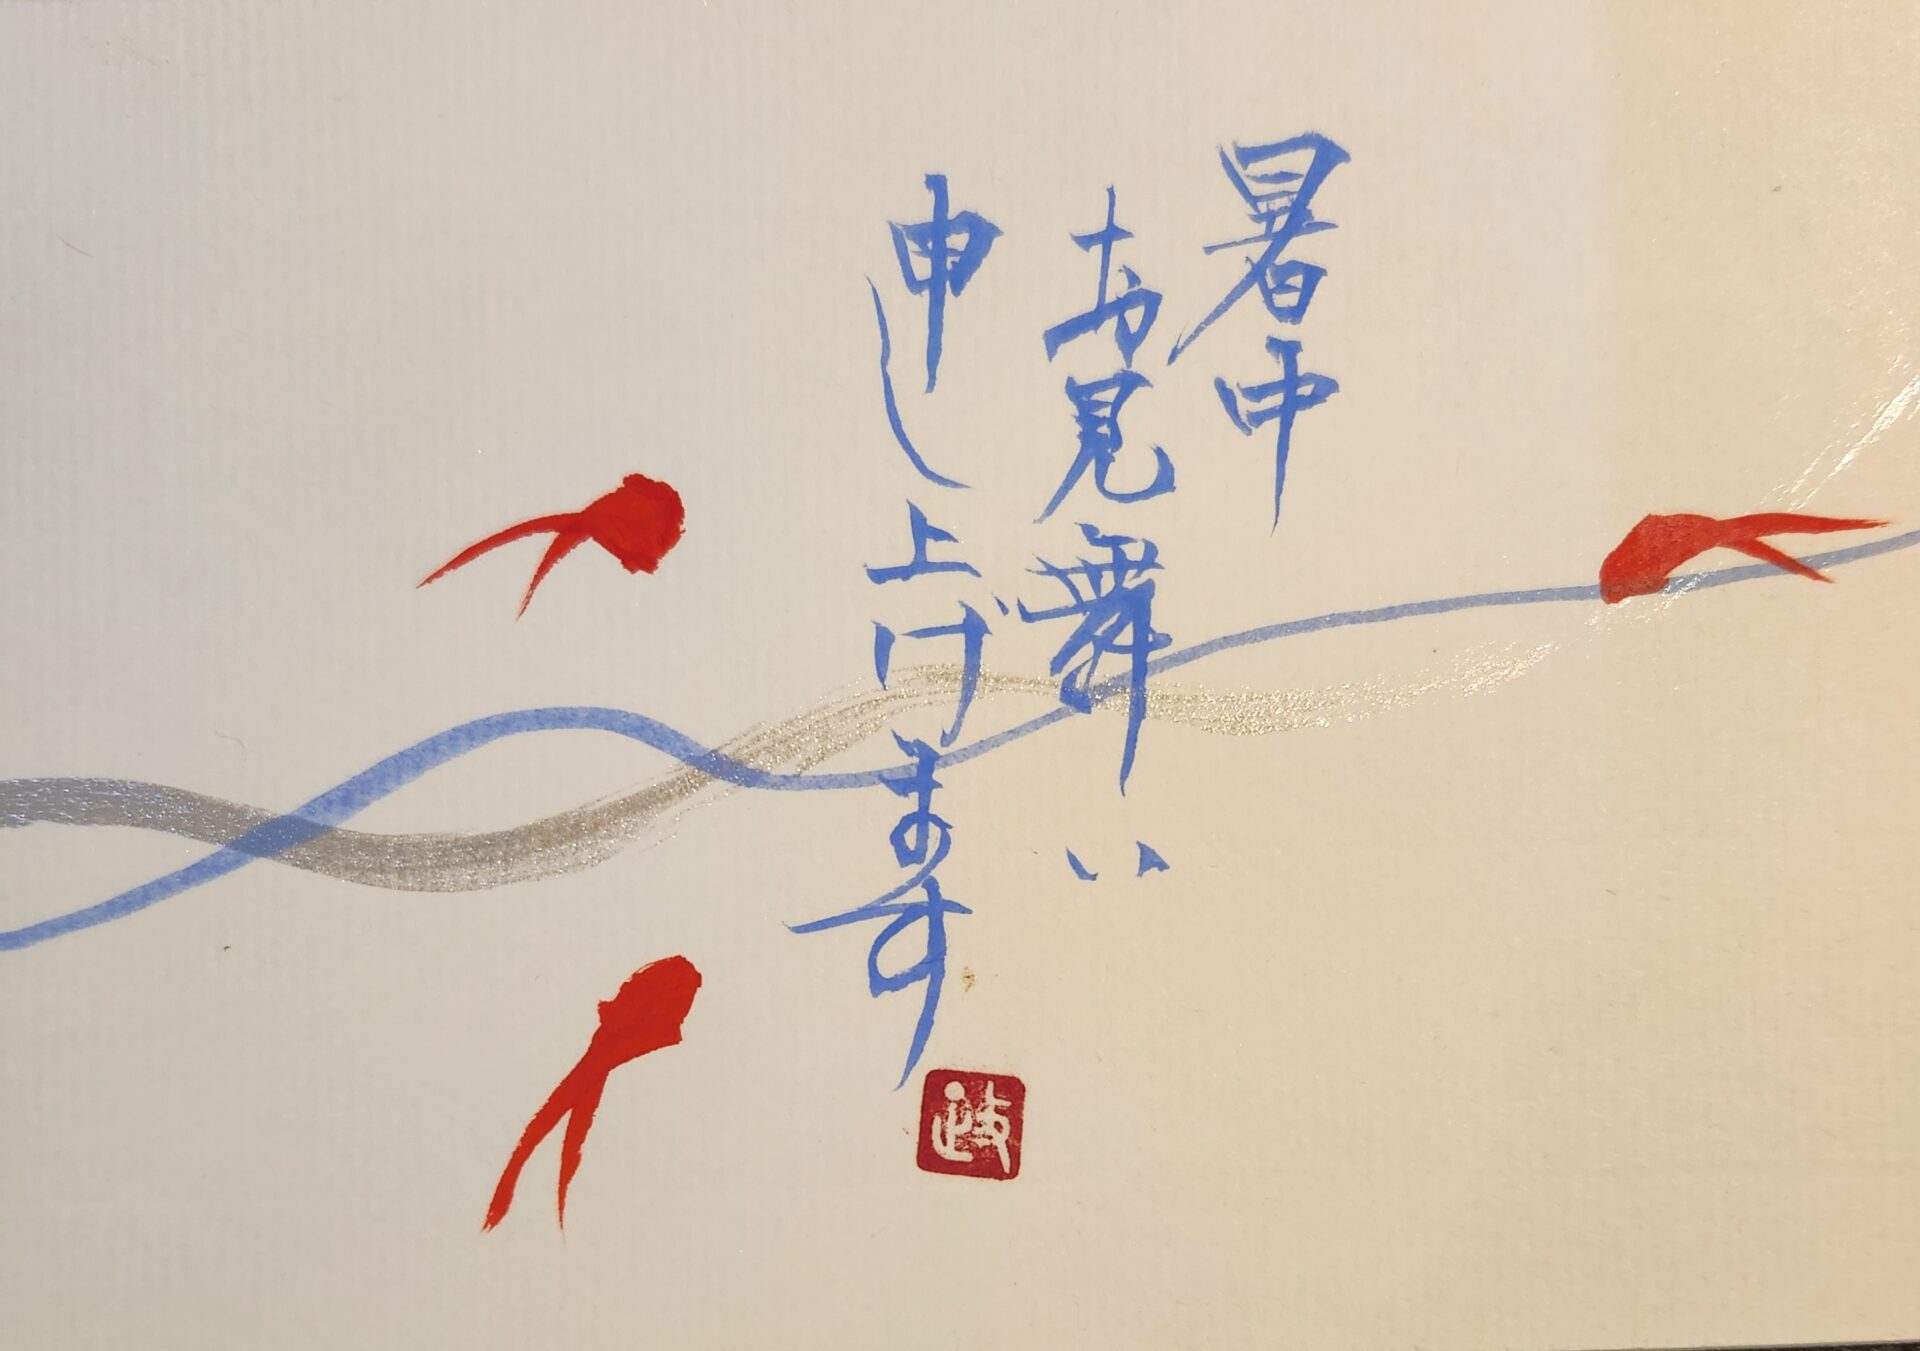 暑中
お見舞い
申し上げます